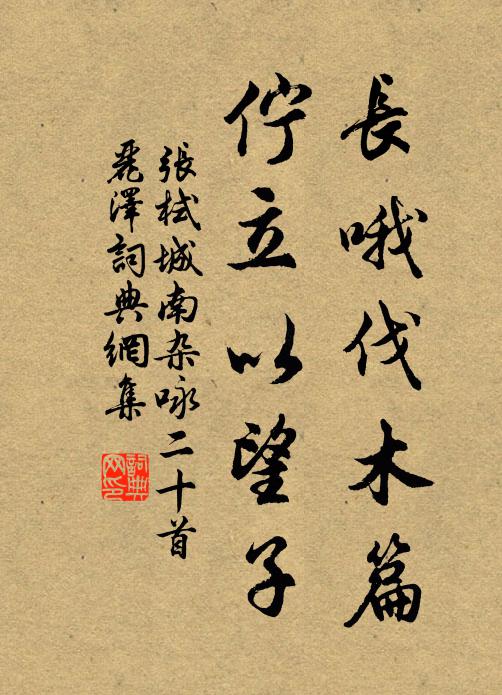 長哦伐木篇
佇立以望子
張栻城南杂咏二十首
麗澤詞典網集
詞典网印